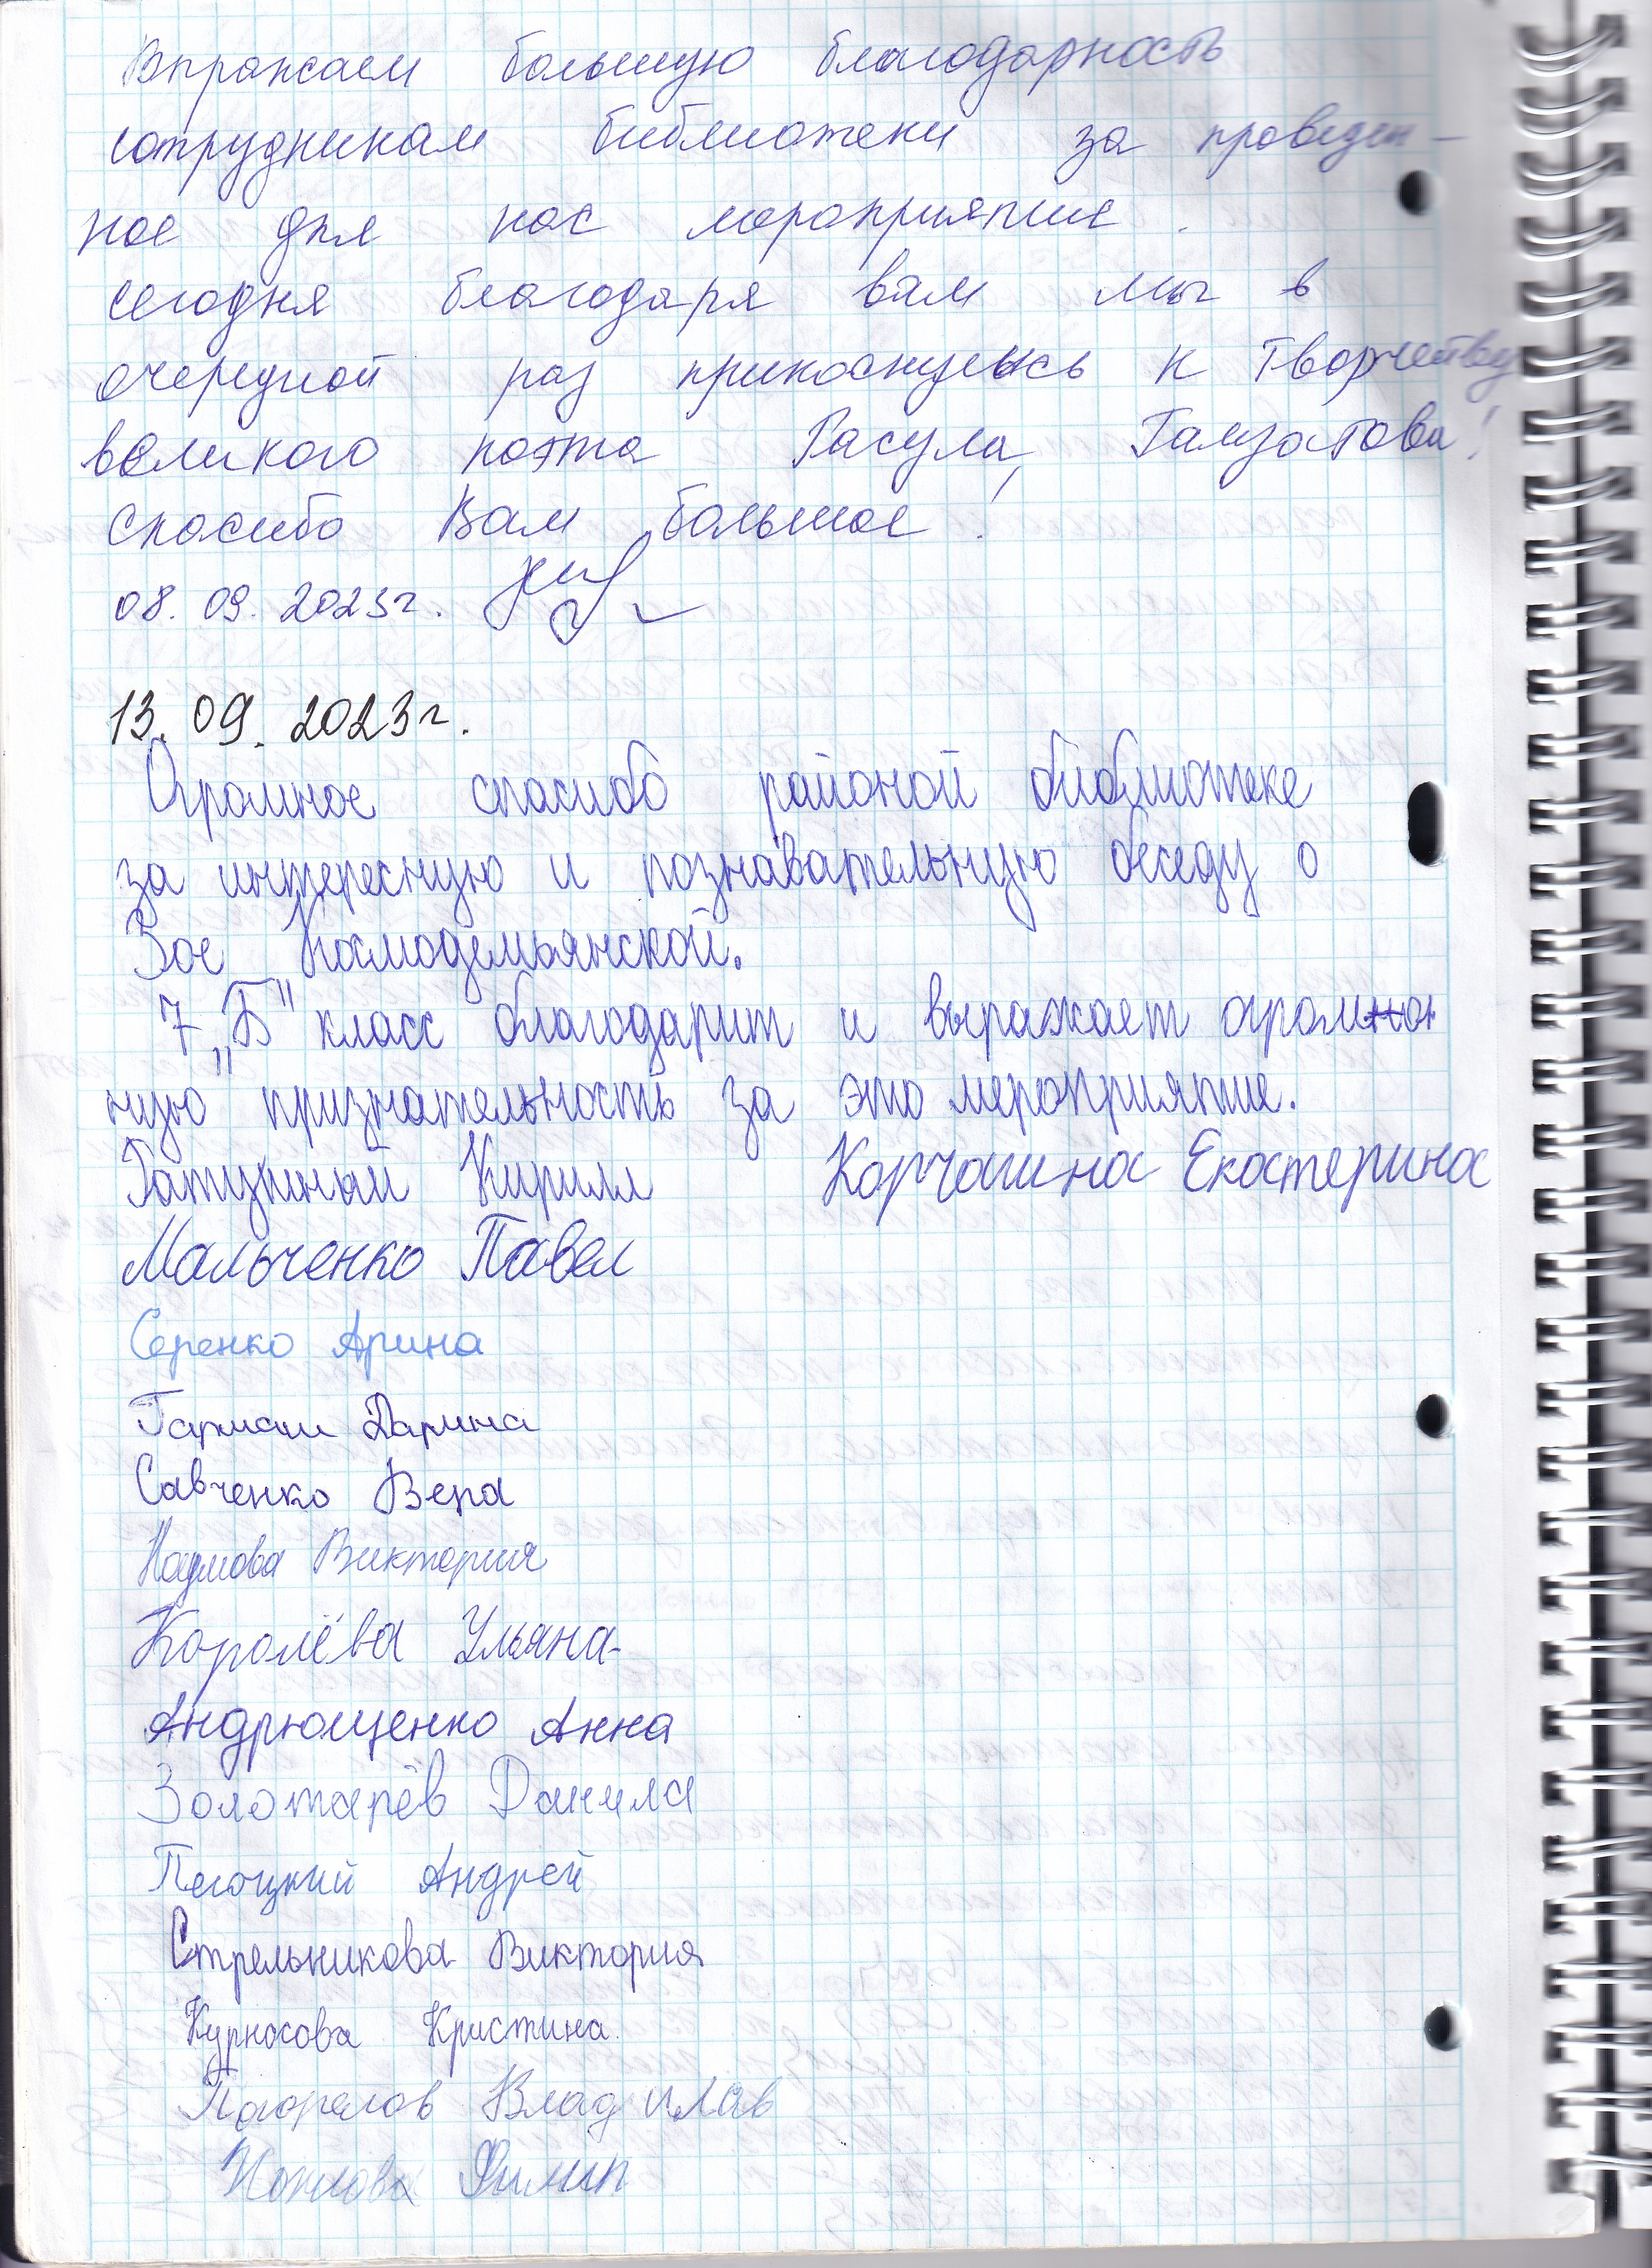 Выражаем большую благодарность
сотрудникам библиотеки за проведен-
ное для нас мероприятие.
Сегодня благодаря вам мы в
очередной раз прикоснулись к творчеству
великого поэта Расула Гамзатова!
Спасибо Вам большое!
08.09.2023г.
13.09.2023г.
Огромное спасибо районой библиотеке
за интересную и познавательную беседу о
Зое Космодемьянской.
7 „Б" класс благодарит и выражает огром
ную признательность за это мероприятие.
Ратушный Кирилл Корчагина Екатерина
Мальченко Павел
Серенко Арина
Гармаш Дарина
Савченко Вера
Наумова Виктория
Королёва Ульяна
Андрющенко Анна
Золотарёв Данила
Андрей
Стрельникова Виктория
Курносова Кристина
Погорелов Владислав
Филип